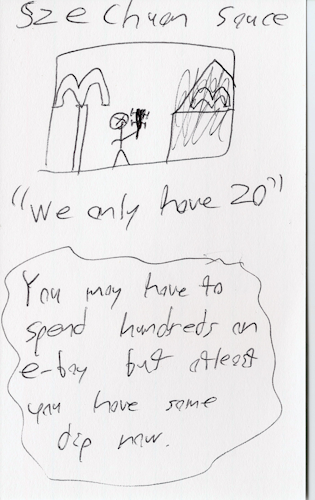 Szechuan Sauce
"We only have 20"
You may have to
spend hundreds on
e-bay but atleast
you have some
dip now.